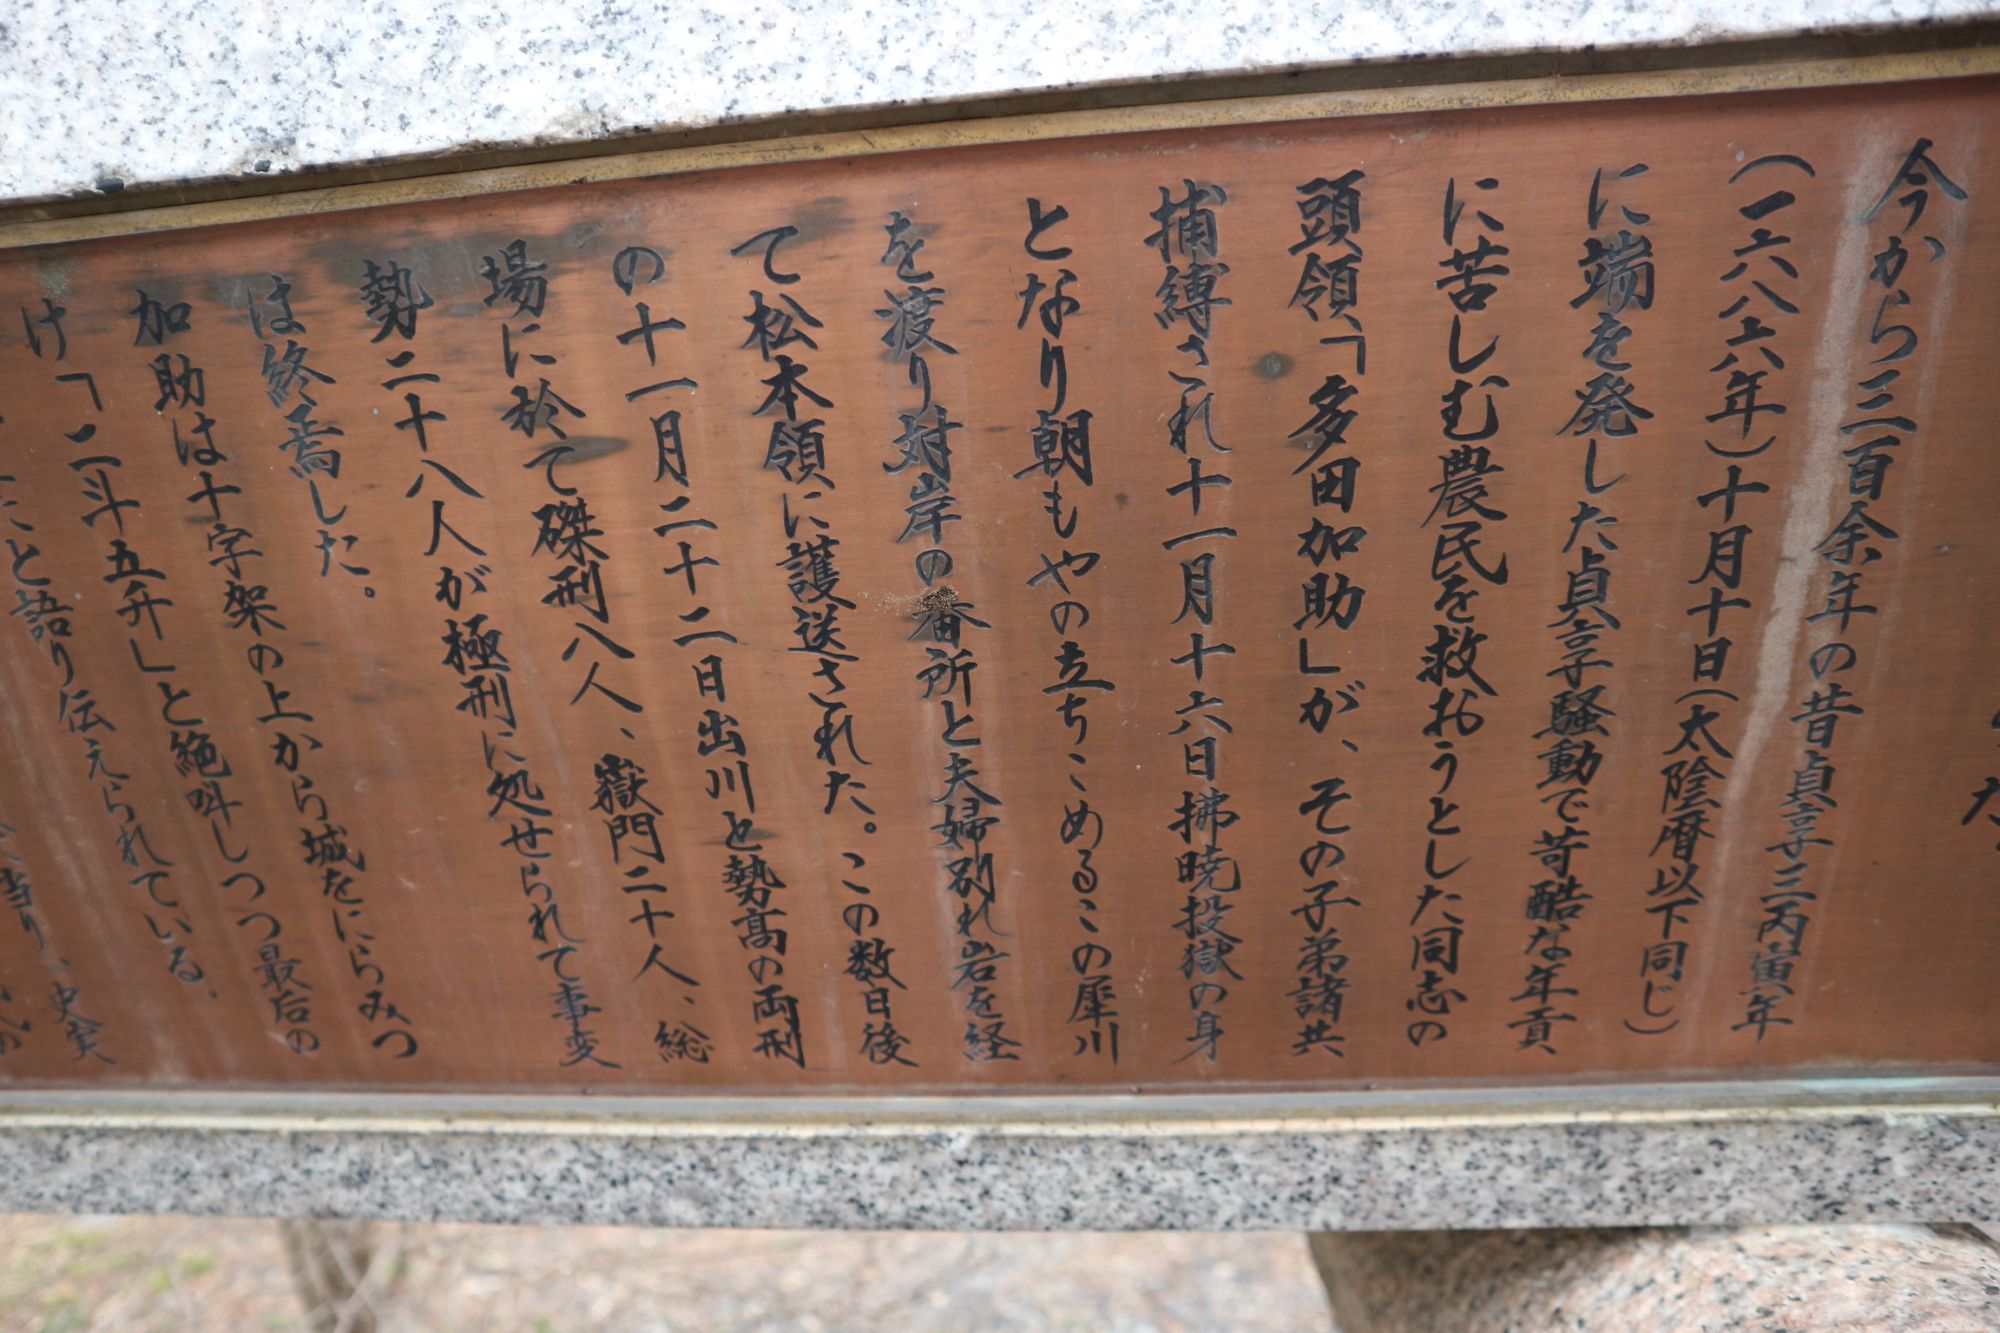 今から三百余年の昔貞享三丙寅年
（一六八六年）十月十日（太陰暦以下同じ）
に端を発した貞享騒動で苛酷な年貢
に苦しむ農民を救おうとした同志の
頭領「多田加助」が、その子弟諸共
捕縛され十一月十六日拂暁投獄の身
となり朝もやの立ちこめるこの犀川
を渡り対岸の番所と夫婦別れ岩を経
て松本領に護送された。この数日後
の十一月二十二日出川と勢高の両刑
場に於て磔刑八人、嶽門二十人、総
勢二十八人が極刑に処せられて事変
は終焉した。
加助は十字架の上から城をにらみつ
け「二斗五升」と絶叫しつつ最后の
こと語り伝えられている。
当り、史実